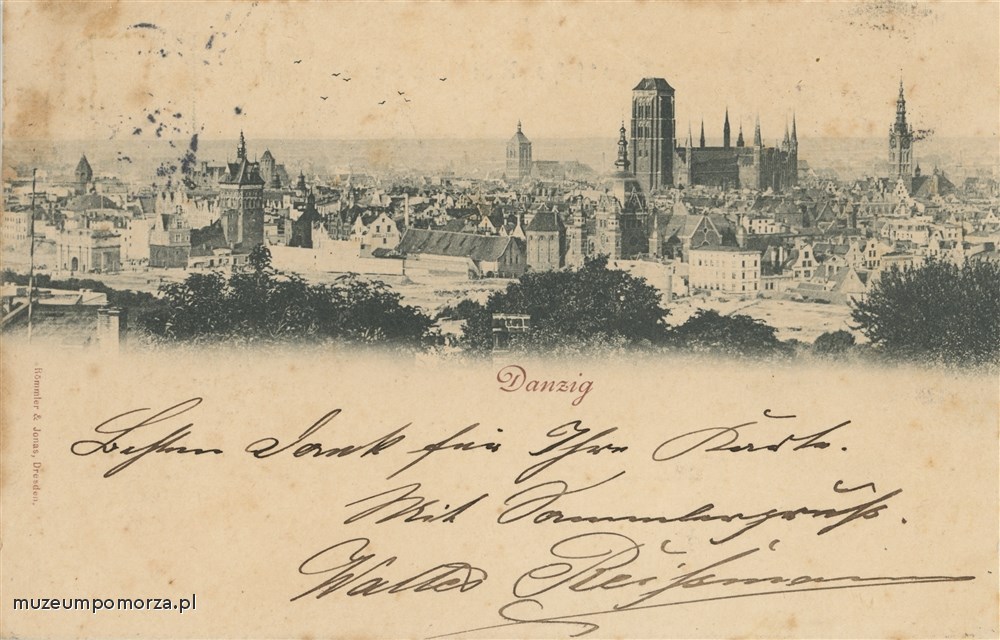 Danzig
Römmler & Jonas, Dresden.
Besten Dank für Ihre Karte.
Mit Sammlergruß.
Walter Reißmann
muzeumpomorza.pl